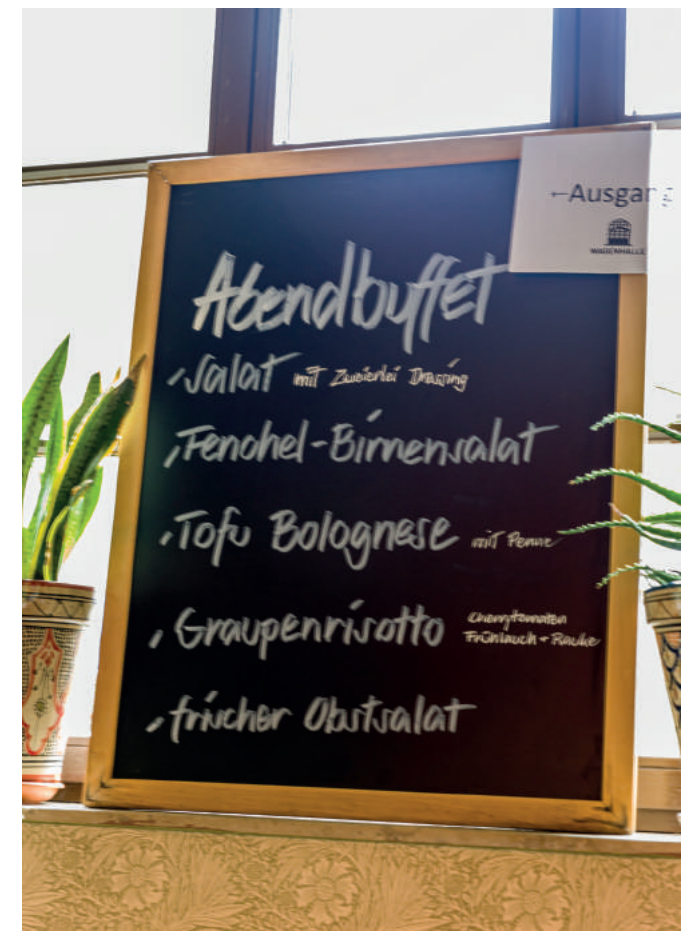 ←Ausgang
WAGENHALLE
Abendbuffet
Salat mit Zweierlei Dressing
Fenchel-Birnensalat
Tofu Bolognese mit Penne
Graupenrisotto Cherrytomaten
Frühlauch + Rauke
frischer Obstsalat